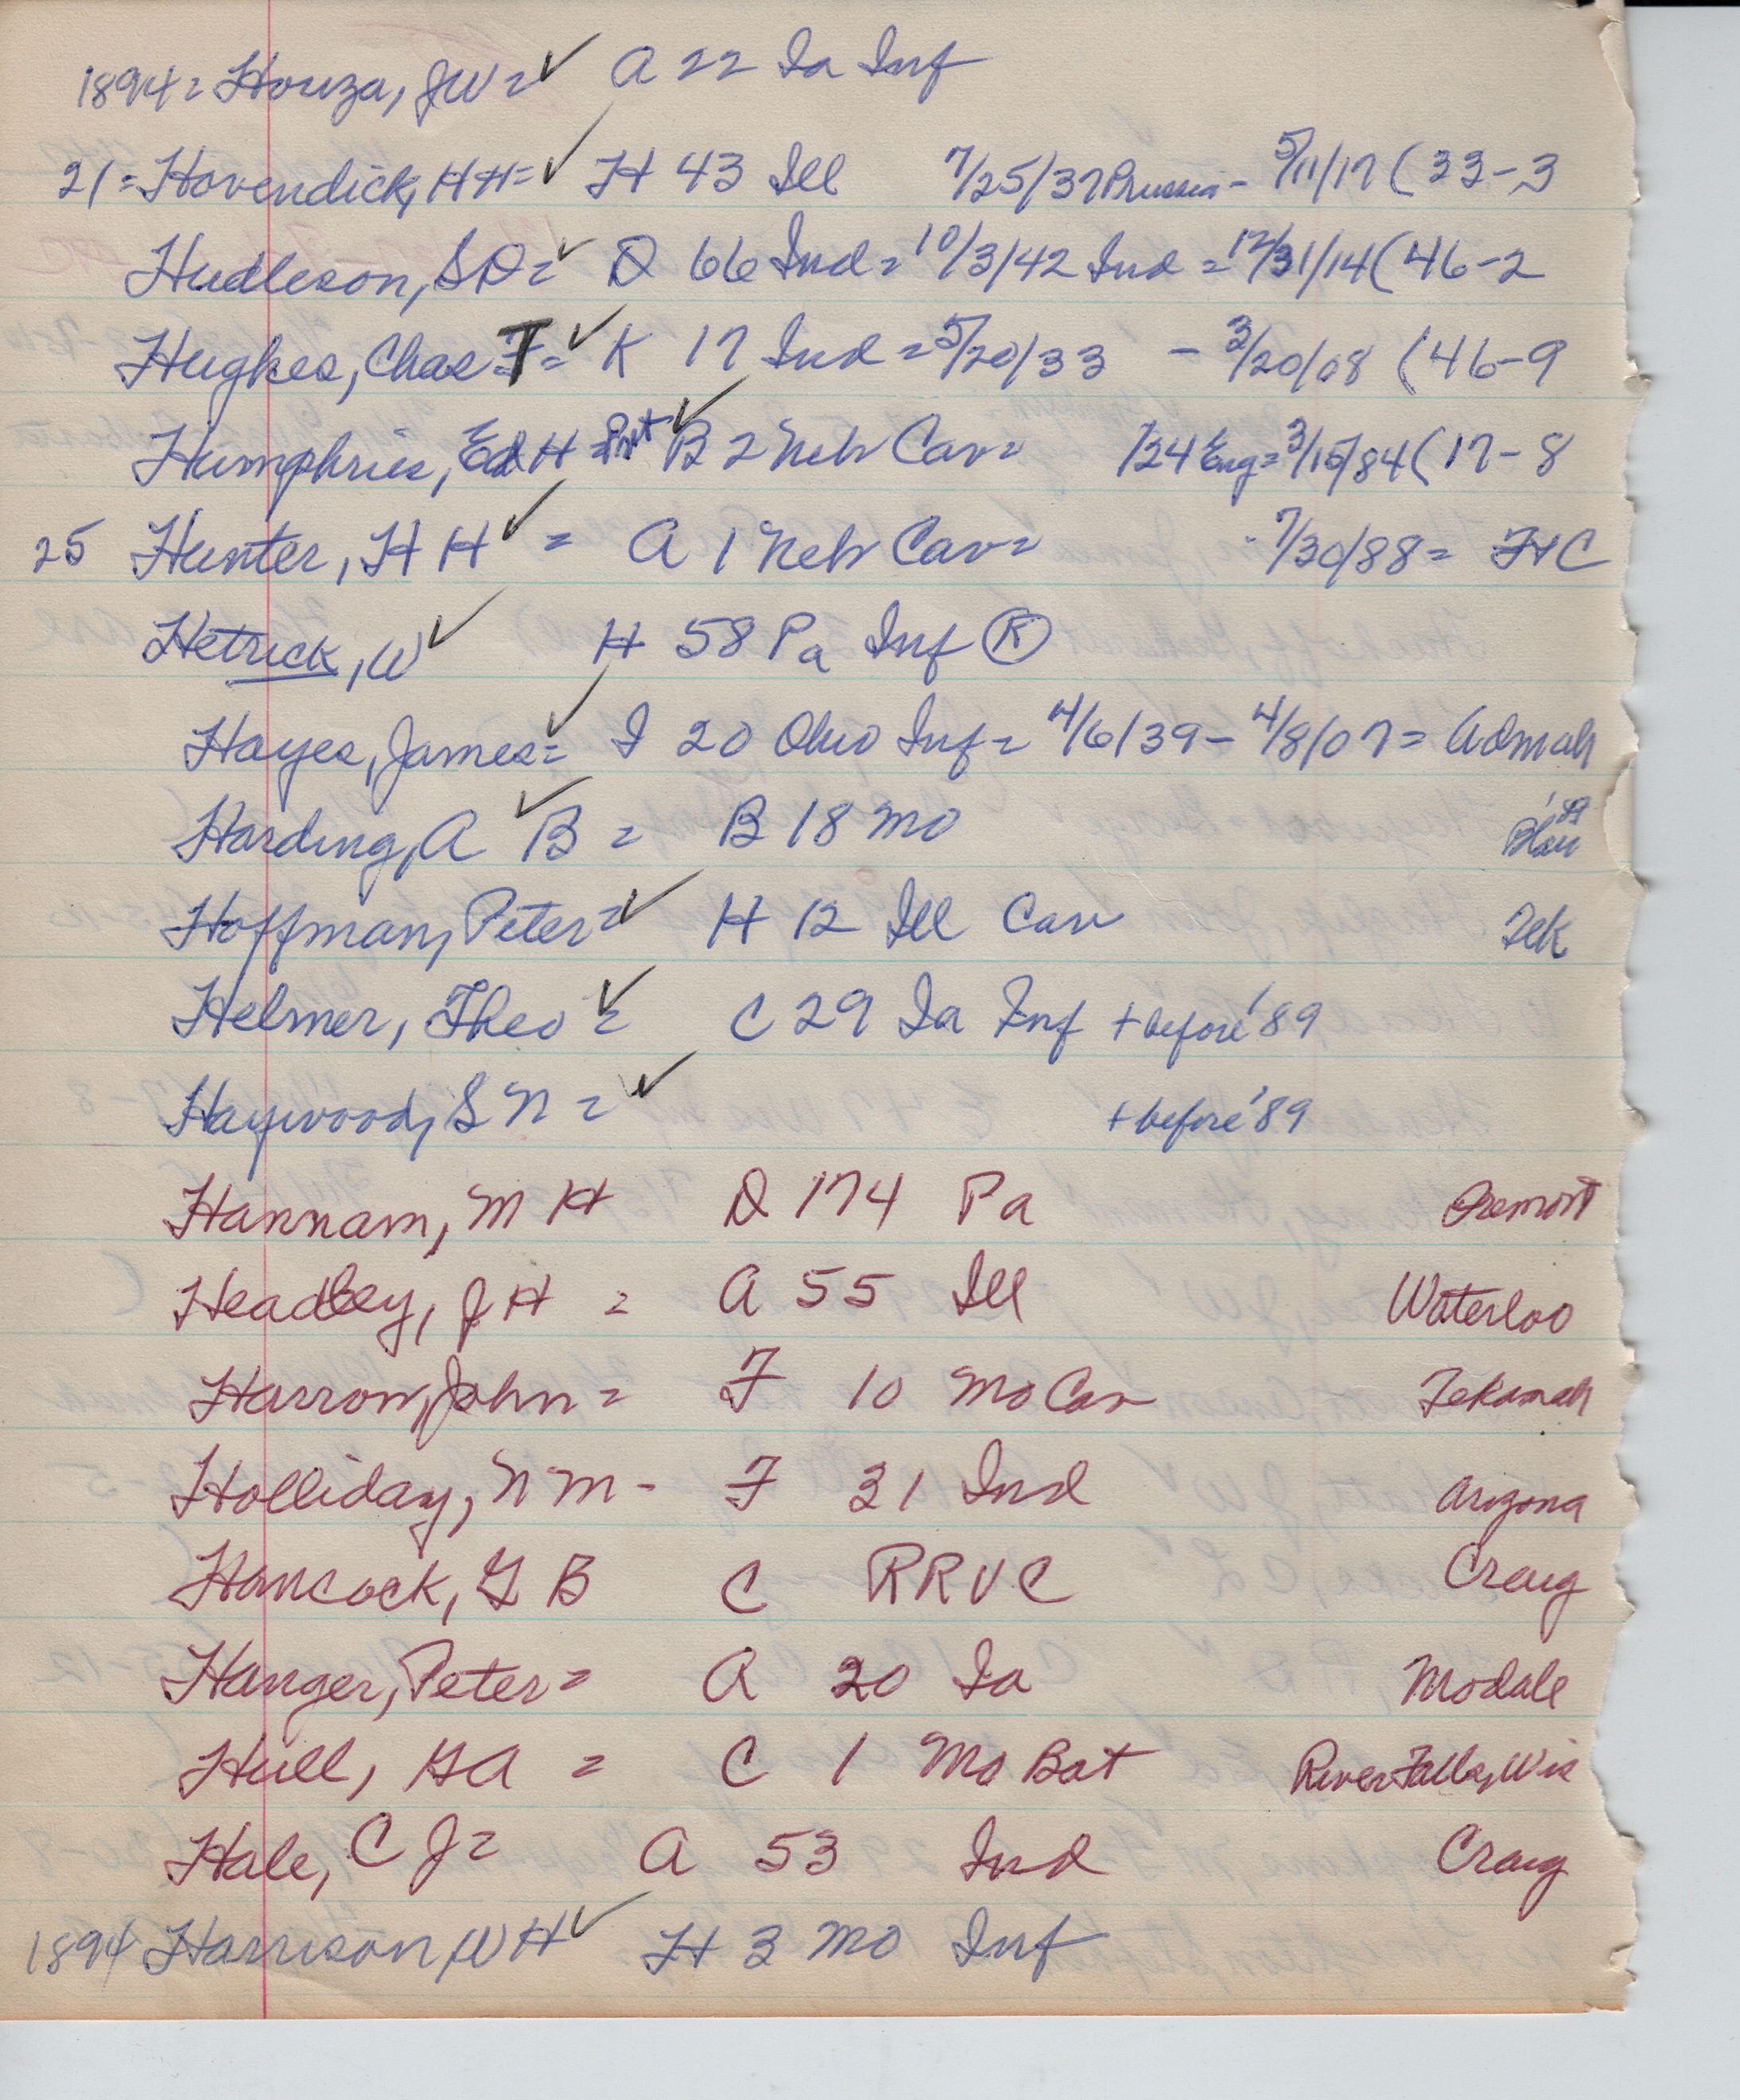 1894 = Houza, JW = ✓ A 22 Ia Inf
21 = Hovendick, HH = ✓ H 43 Ill 7/25/37 Prussia - 5/11/17 (33-3
Hudleson, SD = ✓ D 66 Ind = 10/3/42 Ind = 12/31/14 (46-2
Hughes, Chas T = ✓ K 17 Ind = 5/20/33 - 3/20/08 (46-9
Humphries, Ed H = Pvt ✓ B 2 Neb Cav = /24 Eng = 3/15/84 (17-8
25 Hunter, HH ✓ = A 1 Neb Cav = 7/30/88 = HC
Hetrick, W ✓ H 58 Pa Inf (R)
Hayes, James = ✓ I 20 Ohio Inf = 4/6/39 - 4/8/07 = Admah
Harding, A B ✓ = B 18 Mo '89
Blair
Hoffman, Peter = ✓ H 12 Ill Cav Tek
Helmer, Theo = ✓ C 29 Ia Inf + before '89
Haywood, S N = ✓ + before '89
Hannam, M H D 174 Pa Oremont
Headley, J H = A 55 Ill Waterloo
Harron, John = F 10 Mo Cav Tekamah
Holliday, N M - F 31 Ind Arizona
Hancock, G B C RRVC Craig
Hanger, Peter = A 20 Ia Modale
Hull, GA = C 1 Mo Bat River Falls, Wis
Hale, C J = A 53 Ind Craig
1894 Harrison, WH ✓ H 3 Mo Inf